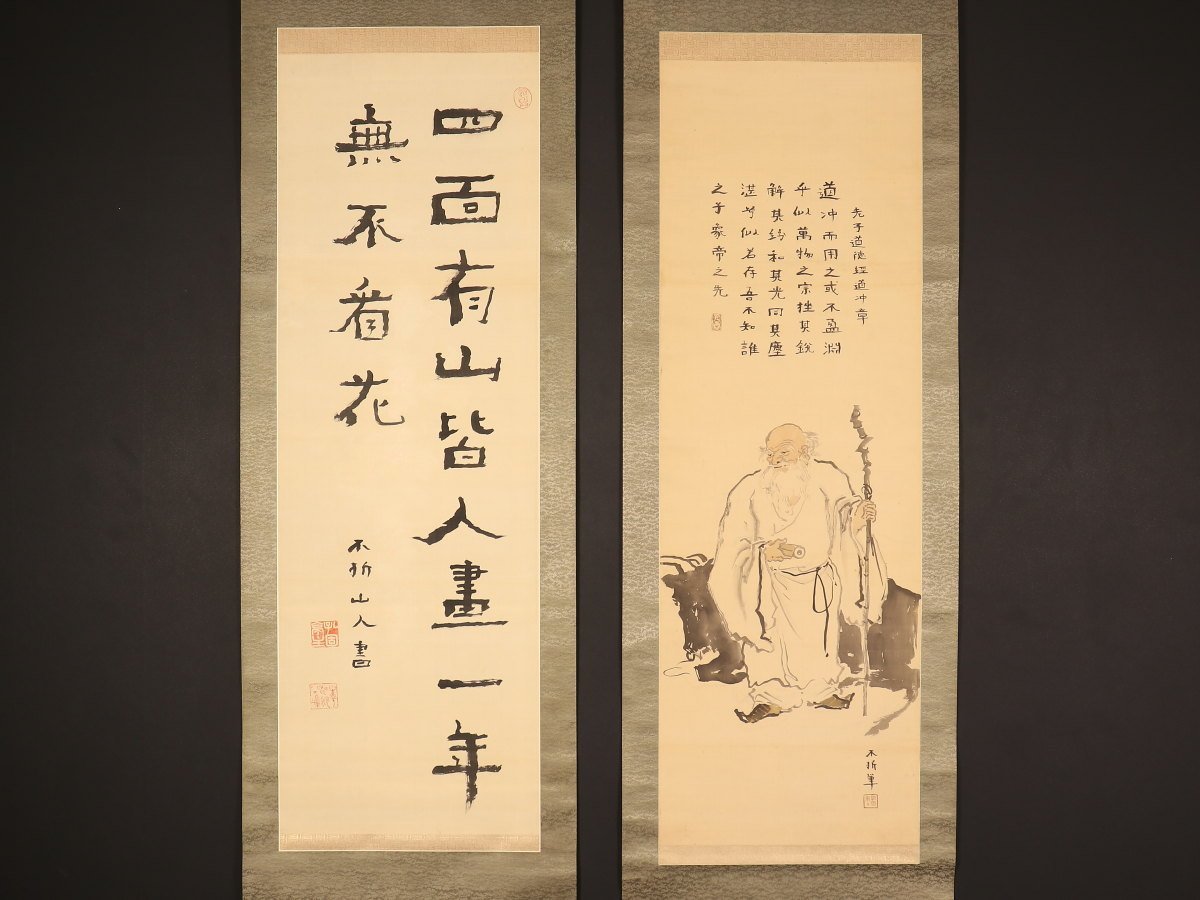 老子道徳經道冲章
道冲而用之或不盈淵
乎似萬物之宗挫其鋭
解其紛和其光同其塵
湛兮似若存吾不知誰
之子象帝之先
不折
四面有山皆入畫一年
無不看花
不折山人書